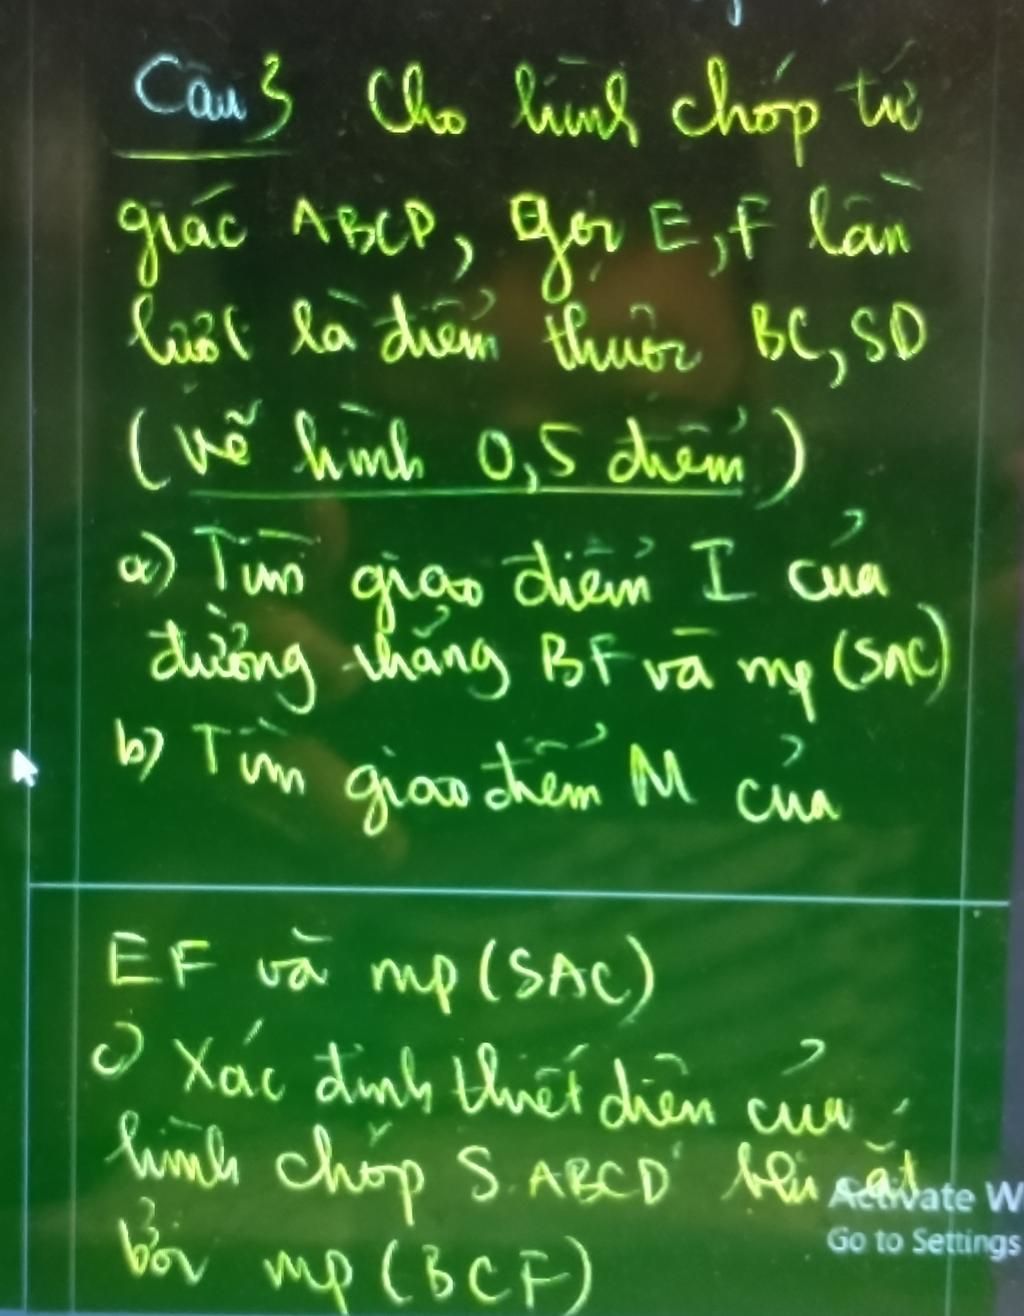 Câu 3 Cho hình chóp tứ
giác ABCD, gọi E, F lần
lượt là điểm thuộc BC, SD
(vẽ hình 0,5 điểm)
a) Tìm giao điểm I của
đường thẳng BF và mp (SAC)
b) Tìm giao điểm M của
EF và mp (SAC)
c) Xác định thiết diện của
hình chóp S.ABCD cắt
bởi mp (BCF)
Activate W
Go to Settings